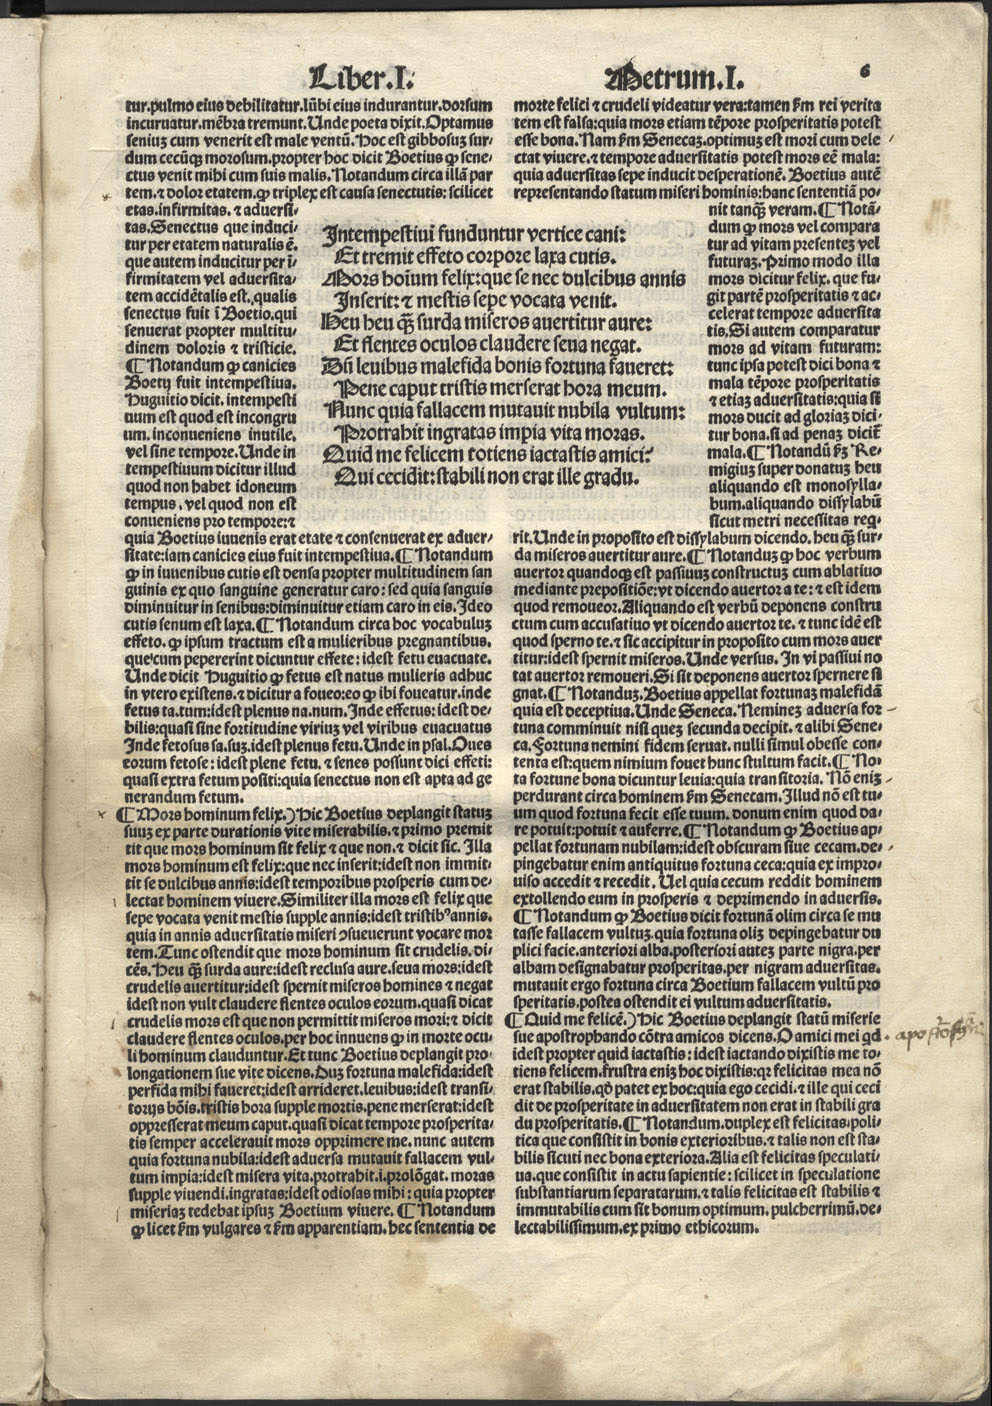 Liber.I.
Metrum.I.
6
tur.pulmo eius debilitatur.lũbi eius indurantur.dorsum
incuruatur.mẽbra tremunt.Unde poeta dixit.Optamus
seniuȝ cum venerit est male ventũ.Hoc est gibbosuȝ sur-
dum cecũqȝ morosum.propter hoc dicit Boetius ꝙ sene-
ctus venit mihi cum suis malis. Notandum circa illã par
tem.⁊ dolor etatem.ꝙ triplex est causa senectutis: scilicet
etas.infirmitas. ⁊ aduersi-
tas.Senectus que induci-
tur per etatem naturalis ẽ.
que autem inducitur per ĩ-
firmitatem vel aduersita-
tem accidẽtalis est. qualis
senectus fuit ĩ Boetio.qui
senuerat propter multitu-
dinem doloris ⁊ tristicie.
¶ Notandum ꝙ canicies
Boetij fuit intempestiua.
Huguitio dicit. intempesti
uum est quod est incongru
um. inconueniens inutile.
vel sine tempore.Unde in
tempestiuum dicitur illud
quod non habet idoneum
tempus. vel quod non est
conueniens pro tempore:⁊
quia Boetius iuuenis erat etate ⁊ consenuerat ex aduer-
sitate:iam canicies eius fuit intempestiua.¶ Notandum
ꝙ in iuuenibus cutis est densa propter multitudinem san
guinis ex quo sanguine generatur caro: sed quia sanguis
diminuitur in senibus:diminuitur etiam caro in eis. Ideo
cutis senum est laxa.¶ Notandum circa hoc vocabuluȝ
effeto. ꝙ ipsum tractum est a mulieribus pregnantibus.
que:cum pepererint dicuntur effete: idest fetu euacuate.
Unde dicit Huguitio ꝙ fetus est natus mulieris adhuc
in vtero existens. ⁊ dicitur a foueo:eo ꝙ ibi foueatur.inde
fetus ta.tum:idest plenus na.num. Inde effetus: idest de-
bilis:quasi sine fortitudine viriuȝ vel viribus euacuatus
Inde fetosus sa.suȝ.idest plenus fetu.Unde in psal.Oues
eorum fetose: idest plene fetu. ⁊ senes possunt dici effeti:
quasi extra fetum positi:quia senectus non est apta ad ge
nerandum fetum.
¶ Mors hominum felix.) Hic Boetius deplangit statuȝ
suuȝ ex parte durationis vite miserabilis.⁊ primo premit
tit que mors hominum sit felix ⁊ que non. ⁊ dicit sic. Illa
mors hominum est felix:que nec inserit:idest non immit-
tit se dulcibus annis:idest temporibus prosperis cum de-
lectat hominem viuere.Similiter illa mors est felix que
sepe vocata venit mestis supple annis:idest tristibꝰ annis.
quia in annis aduersitatis miseri ꝯsueuerunt vocare mor
tem.Tunc ostendit que mors hominum sit crudelis. di-
cẽs. Heu qȝ̃ surda aure:idest reclusa aure.seua mors:idest
crudelis auertitur:idest spernit miseros homines ⁊ negat
idest non vult claudere flentes oculos eorum.quasi dicat
crudelis mors est que non permittit miseros mori: ⁊ dicit
claudere flentes oculos.per hoc innuens ꝙ in morte ocu-
li hominum clauduntur.Et tunc Boetius deplangit pro-
longationem sue vite dicens.Duȝ fortuna malefida:idest
perfida mihi faueret:idest arrideret.leuibus:idest transi-
torijs bõis.tristis hora supple mortis.pene merserat:idest
oppresserat meum caput.quasi dicat tempore prosperita-
tis semper accelerauit mors opprimere me. nunc autem
quia fortuna nubila:idest aduersa mutauit fallacem vul-
tum impia:idest misera vita.protrahit.i.prolõgat. moras
supple viuendi.ingratas:idest odiosas mihi: quia propter
miseriaȝ tedebat ipsuȝ Boetium viuere. ¶ Notandum
ꝙ licet ẜm vulgares ⁊ ẜm apparentiam. hec sententia de
Intempestiui funduntur vertice cani:
Et tremit effeto corpore laxa cutis.
Mors hoĩum felix:que se nec dulcibus annis
Inserit:⁊ mestis sepe vocata venit.
Heu heu qȝ̃ surda miseros auertitur aure:
Et flentes oculos claudere seua negat.
Dũ leuibus malefida bonis fortuna faueret:
Pene caput tristis merserat hora meum.
Nunc quia fallacem mutauit nubila vultum:
Protrahit ingratas impia vita moras.
Quid me felicem totiens iactastis amici:
Qui cecidit:stabili non erat ille gradu.
morte felici ⁊ crudeli videatur vera:tamen ẜm rei verita
tem est falsa:quia mors etiam tẽpore prosperitatis potest
esse bona. Nam ẜm Senecaȝ.optimuȝ est mori cum dele
ctat viuere. ⁊ tempore aduersitatis potest mors eẽ mala:
quia aduersitas sepe inducit desperationẽ. Boetius autẽ
representando statum miseri hominis:hanc sententiã po-
nit tanqȝ̃ veram.¶ Notã-
dum ꝙ mors vel compara
tur ad vitam presenteȝ vel
futuraȝ.Primo modo illa
mors dicitur felix. que fu-
git partẽ prosperitatis ⁊ ac-
celerat tempore aduersita
tis.Si autem comparatur
mors ad vitam futuram:
tunc ipsa potest dici bona ⁊
mala tẽpore prosperitatis
⁊ etiaȝ aduersitatis:quia si
mors ducit ad gloriaȝ dici-
tur bona.si ad penaȝ dicit̃
mala.¶ Notandũ ẜȝ Re-
migiuȝ super donatuȝ heu
aliquando est monosylla-
bum.aliquando dissylabũ
sicut metri necessitas req-
rit.Unde in proposito est dissylabum dicendo. heu qȝ̃ sur-
da miseros auertitur aure.¶ Notanduȝ ꝙ hoc verbum
auertor quandoqȝ est passiuuȝ constructuȝ cum ablatiuo
mediante prepositiõe:vt dicendo auertor a te: ⁊ est idem
quod remoueor.Aliquando est verbũ deponens constru
ctum cum accusatiuo vt dicendo auertor te. ⁊ tunc idẽ est
quod sperno te.⁊ sic accipitur in proposito cum mors auer
titur:idest spernit miseros. Unde versus. In vi passiui no
tat auertor remoueri. Si sit deponens auertor spernere si
gnat.¶ Notanduȝ.Boetius appellat fortunaȝ malefidã
quia est deceptiua. Unde Seneca. Nemineȝ aduersa for-
tuna comminuit nisi queȝ secunda decipit. ⁊ alibi Sene-
ca.Fortuna nemini fidem seruat. nulli simul obesse con-
tenta est:quem nimium fouet hunc stultum facit.¶ No-
ta fortune bona dicuntur leuia:quia transitoria. Nõ eniȝ
perdurant circa hominem ẜm Senecam.Illud nõ est tu-
um quod fortuna fecit esse tuum. donum enim quod da-
re potuit:potuit ⁊ auferre.¶ Notandum ꝙ Boetius ap-
pellat fortunam nubilam:idest obscuram siue cecam.de-
pingebatur enim antiquitus fortuna ceca:quia ex impro-
uiso accedit ⁊ recedit. Uel quia cecum reddit hominem
extollendo eum in prosperis ⁊ deprimendo in aduersis.
¶ Notandum ꝙ Boetius dicit fortunã olim circa se mu
tasse fallacem vultuȝ.quia fortuna oliȝ depingebatur du
plici facie.anteriori alba.posteriori auteȝ parte nigra.per
albam designabatur prosperitas.per nigram aduersitas.
mutauit ergo fortuna circa Boetium fallacem vultũ pro
speritatis.postea ostendit ei vultum aduersitatis.
¶ Quid me felicẽ.) Hic Boetius deplangit statũ miserie
sue apostrophando cõtra amicos dicens.O amici mei qd
idest propter quid iactastis: idest iactando dixistis me to-
tiens felicem.frustra eniȝ hoc dixistis:qꝛ felicitas mea nõ
erat stabilis.qđ patet ex hoc:quia ego cecidi.⁊ ille qui ceci
dit de prosperitate in aduersitatem non erat in stabili gra
du prosperitatis.¶ Notandum.duplex est felicitas:poli-
tica que consistit in bonis exterioribus.⁊ talis non est sta-
bilis sicuti nec bona exteriora.Alia est felicitas speculati-
ua.que consistit in actu sapientie: scilicet in speculatione
substantiarum separatarum.⁊ talis felicitas est stabilis ⁊
immutabilis cum sit bonum optimum. pulcherrimũ.de-
lectabilissimum.ex primo ethicorum.